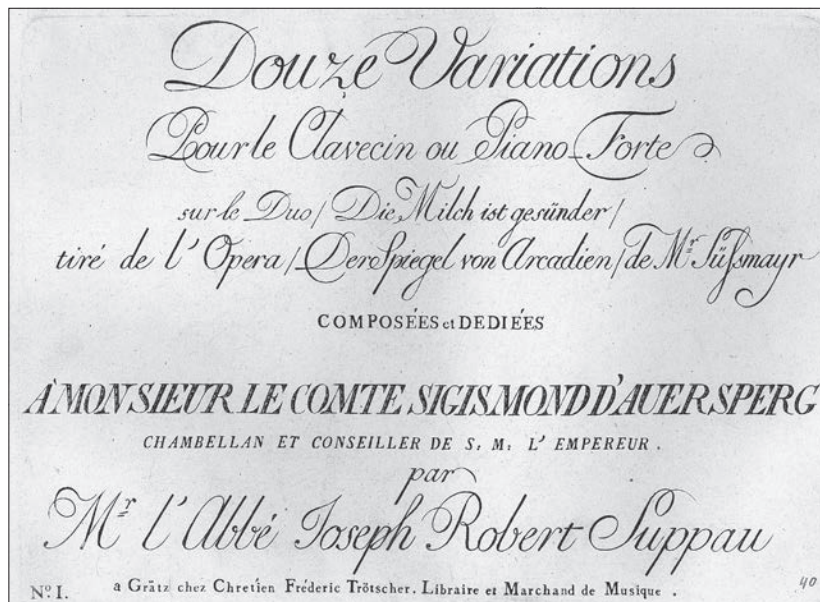 Douze Variations
Pour le Clavecin ou Piano-Forte
sur le Duo/ Die Milch ist gesünder/
tiré de l'Opera/ Der Spiegel von Arcadien/ de Mr. Süßmayr
COMPOSÉES et DEDIÉES
À MONSIEUR LE COMTE SIGISMOND D'AUERSPERG
CHAMBELLAN ET CONSEILLER DE S: M: L' EMPEREUR .
par
Mr. l'Abbé Joseph Robert Suppau
No. I. a Grätz chez Chretien Fréderic Trötscher. Libraire et Marchand de Musique . 40